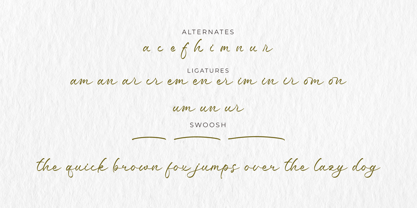 ALTERNATES
a c e f h i m n u r
LIGATURES
am an ar cr em en er im in ir om on
um un ur
SWOOSH
the quick brown fox jumps over the lazy dog